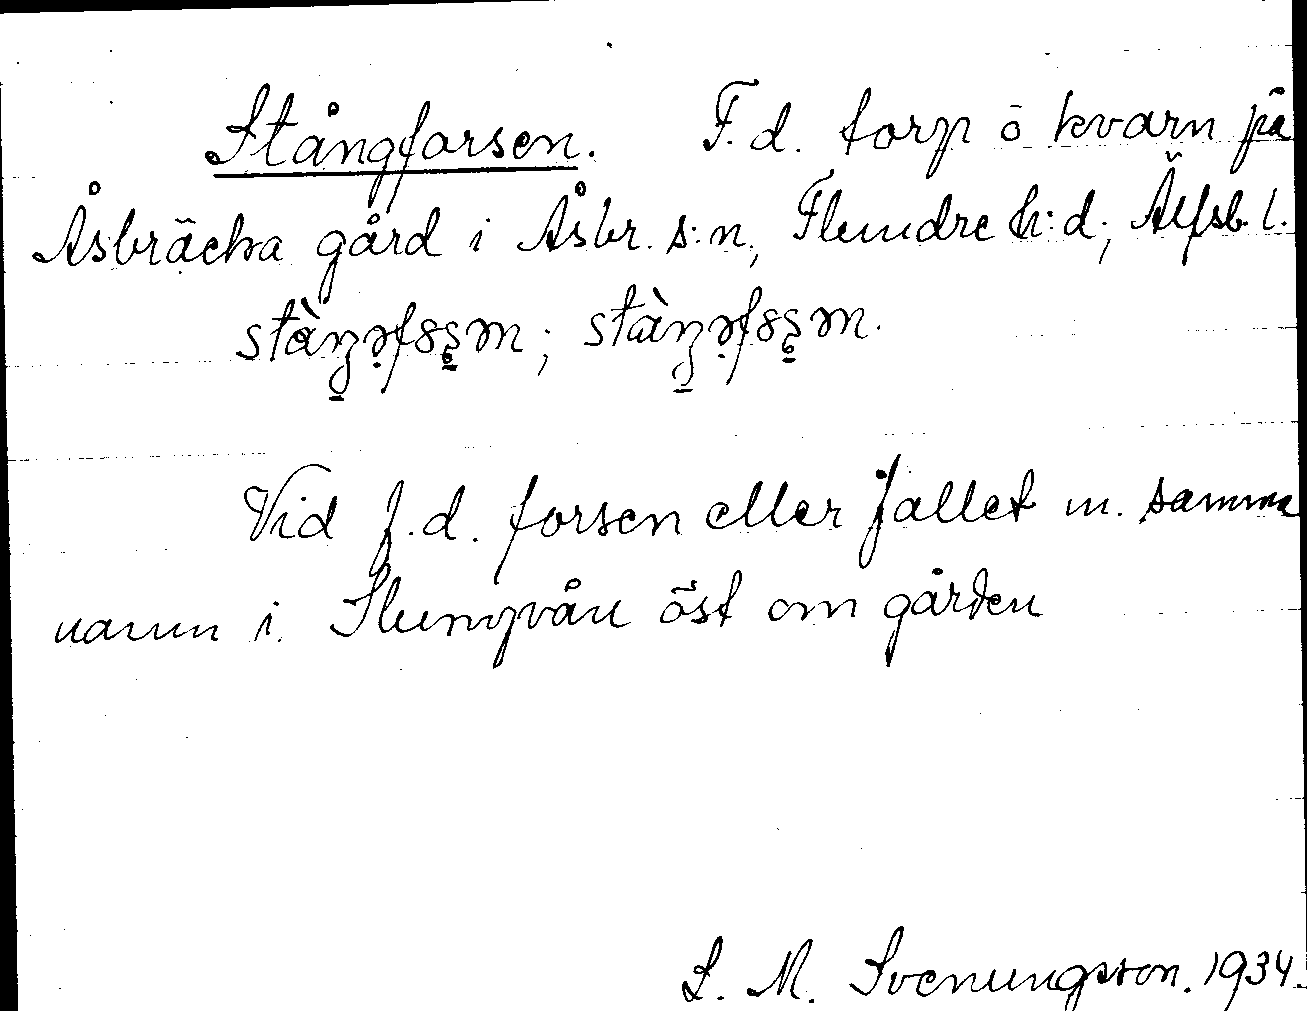 Stångforsen. F.d. torp o kvarn på
Åsbräcka gård i Åsbr. s:n, Flundre h:d, Älfsb. l.
Vid f.d. forsen eller fallet m. samma
namn i Slumpån öst om gården
S. M. Svenungsson. 1934.